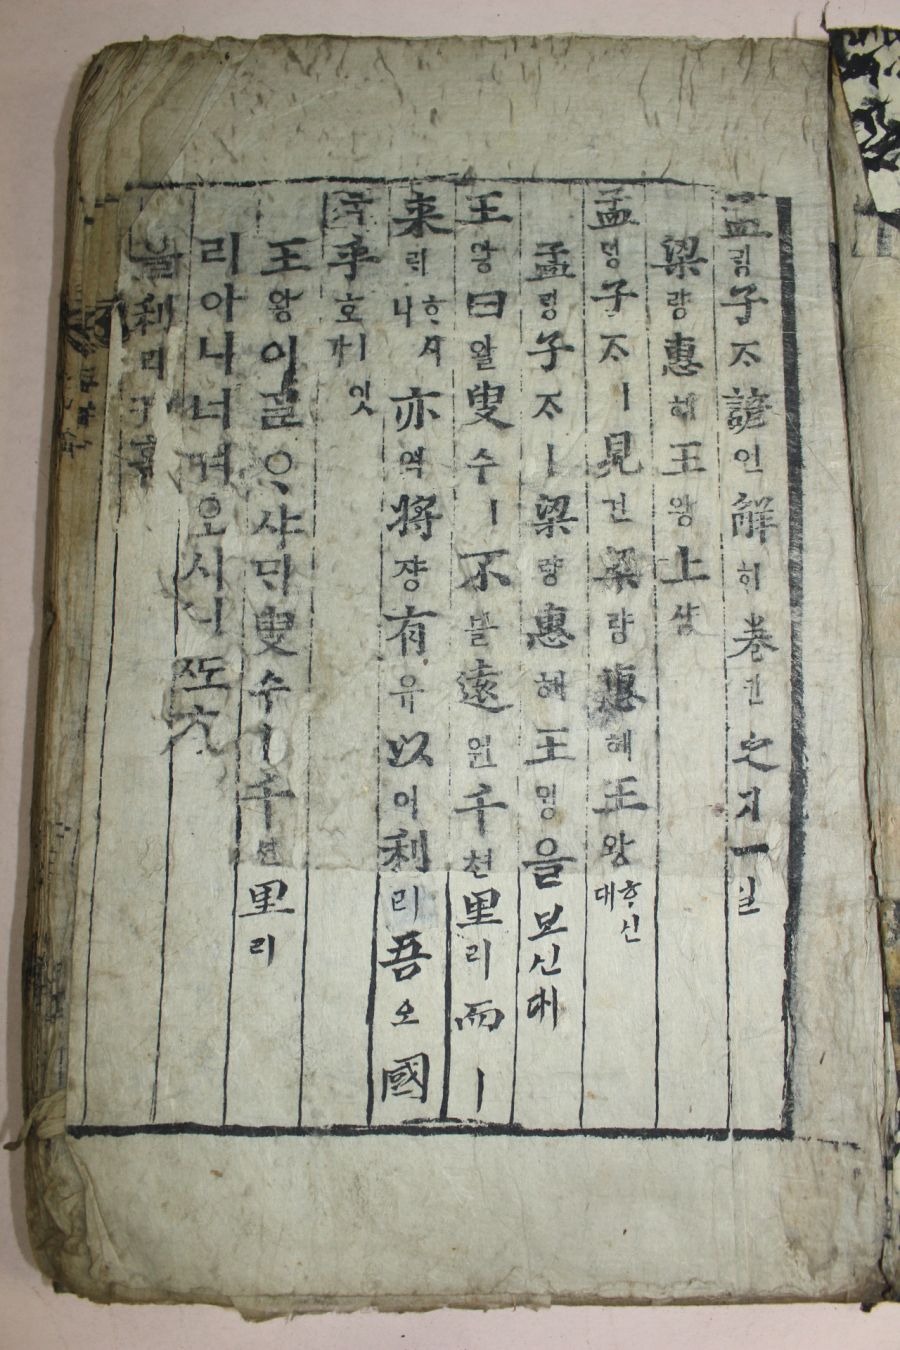 孟ᄆᆡᆼ子ᄌᆞ諺언解ᄒᆡ卷권之지一일
梁량惠혜王왕上샹
孟ᄆᆡᆼ子ᄌᆞㅣ見견梁량惠혜王왕ᄒᆞ신대
孟ᄆᆡᆼ子ᄌᆞㅣ梁량惠혜王왕을보신대
王왕曰왈叟수ㅣ不블遠원千쳔里리而ㅣ
來ᄅᆡᄒᆞ시니亦역將쟝有유以이利리吾오國
乎호ㅣ잇가
王왕이ᄀᆞᆯᄋᆞ샤ᄃᆡ叟수ㅣ千쳔里리
리아니너겨오시니ᄯᅩ
를利리